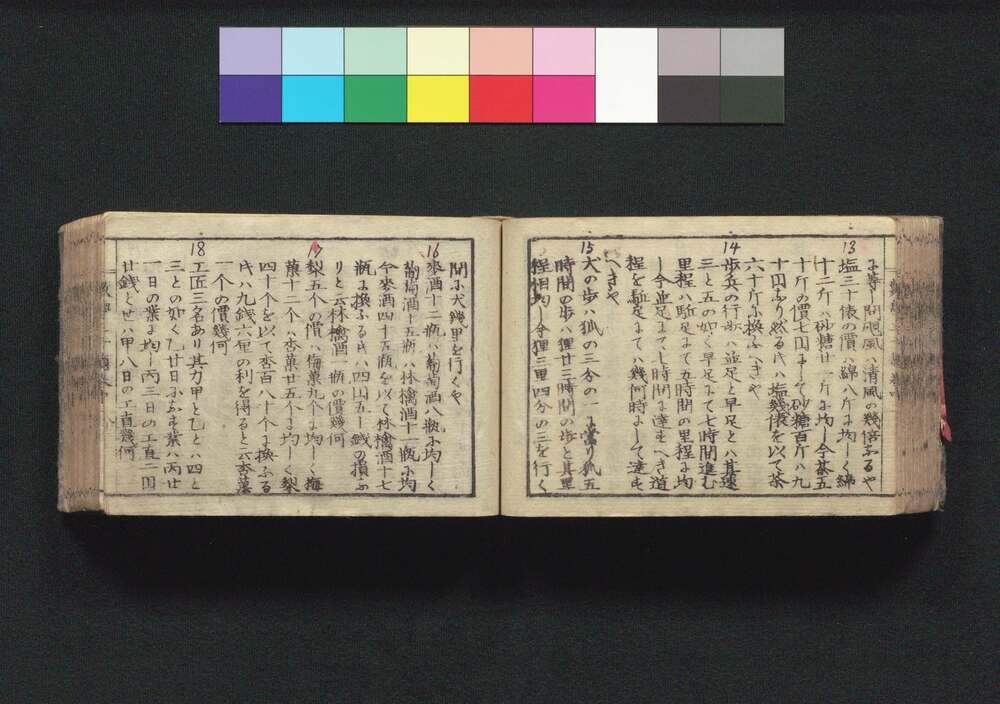 に等し開風ハ清風の幾倍ふるや
13
塩三十俵の價ハ綿八斤に均しく綿
十二斤ハ砂糖廿一斤に均し今茶五
十斤の價七円にして砂糖百斤ハ九
十円ふり然る時ハ塩幾俵を以て茶
六十斤に換ふへきや
14
歩兵の行歩ハ並足と早足とハ其速
三と五の如く早足にて七時間進む
里程ハ駈足にて五時間の里程に均
し今並足にて 時間に達すへき道
程を駈足にてハ幾何時にして達す
へきや
15
犬の歩ハ狐の三分の一に當り狐五
時間の歩ハ狸廿三時間の歩と其里
程相均し今狸三里四分の三を行く
間に犬幾里を行くや
16
麥酒十二瓶ハ葡萄酒八瓶に均しく
葡萄酒十五瓶ハ林檎酒十一瓶に均
今麥酒四十五瓶を以て林檎酒十七
瓶に換ふる時ハ四円五十銭の損ふ
りと云林檎酒一瓶の價幾何
17
梨五个の價ハ梅菓九个に均しく梅
菓十二个ハ杏菓廿五个に均しく梨
四十个を以て杏百八十个に換ふる
時ハ九銭六厘の利を得ると云杏菓
一个の價幾何
18
工匠三名あり其力甲と乙とハ四と
三との如く乙廿日にふす業ハ丙廿
一日の業に均し丙三日の工直二円
廿銭とせハ甲八日の工直幾何